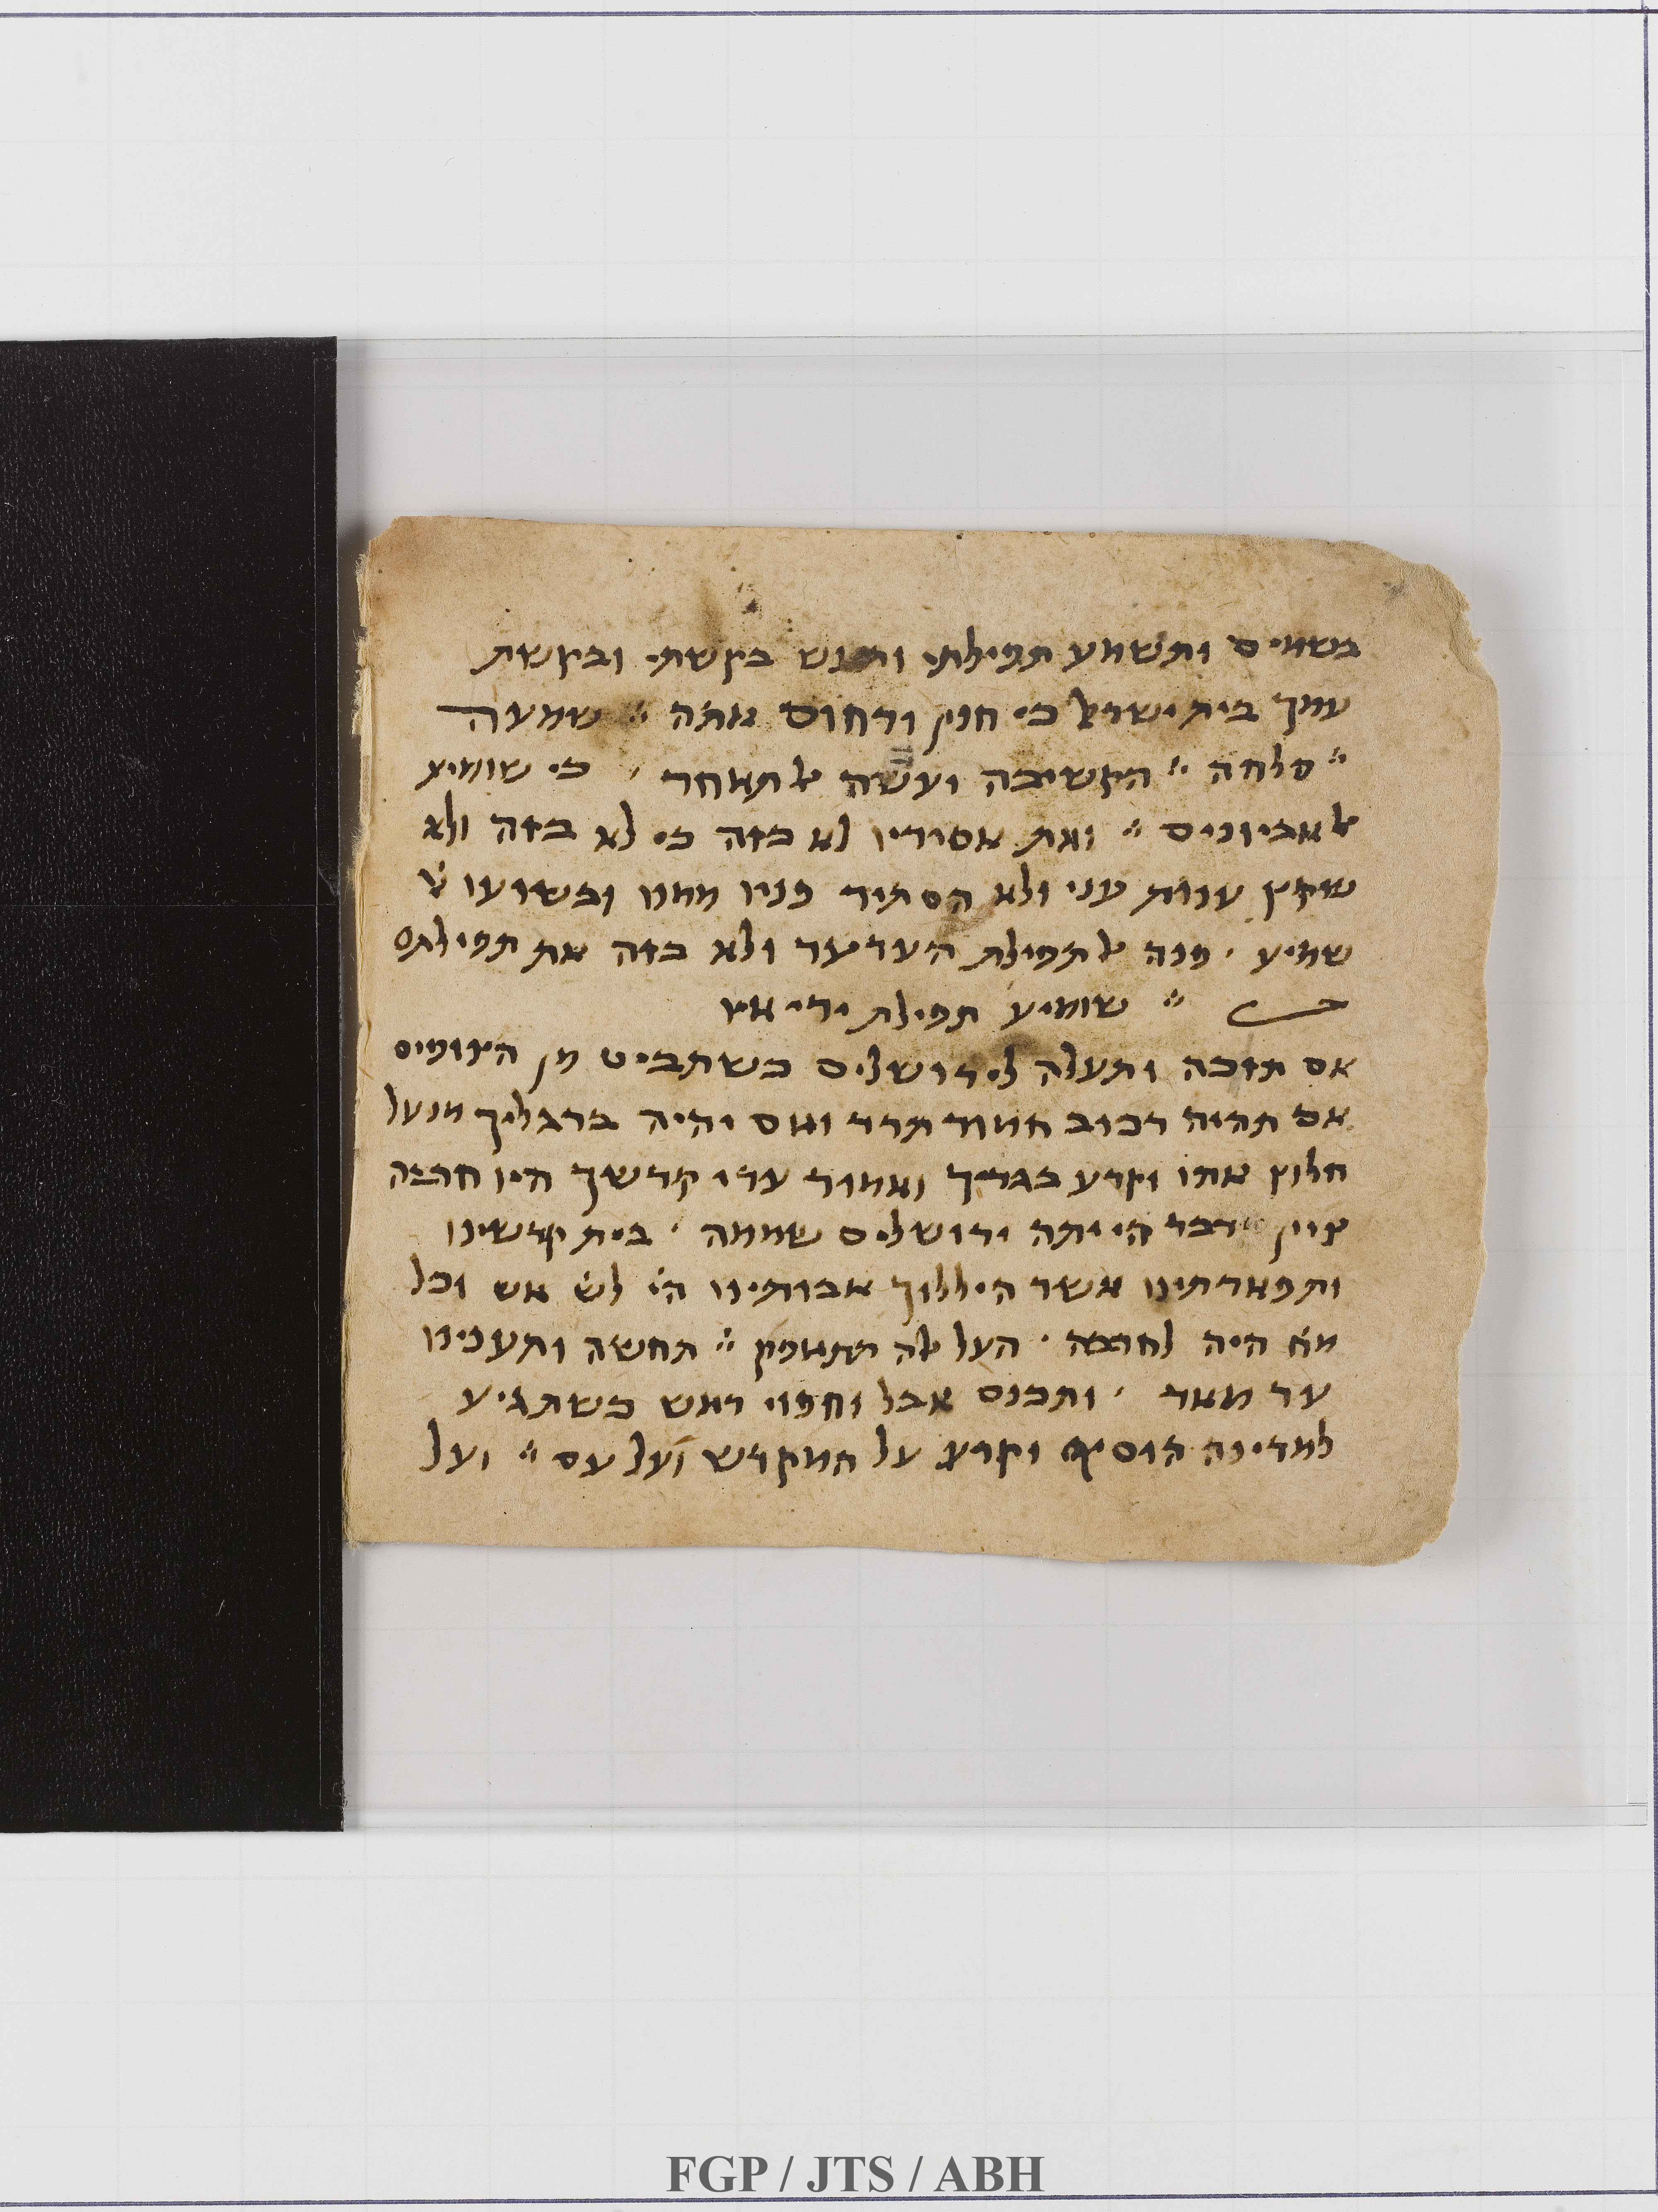 בשמים ותשמע תפילתי ותעש בקשתי ובקשת
עמך בית ישראל כי חנון ורחום אתה ׃ שמעה
׃ סלחה ׃ הקשיבה ועשה אל תאחר ׳ כי שומיע
אל אביונים ׃ ואת אסיריו לא בזה כי לא בזה ולא
שקץ ענות עני ולא הסתיר פניו ממנו ובשועו א׳
שמיע ׳ פנה אל תפילת הערער ולא בזה את תפילתם
׃ שומיע תפילת ידי א
אם תזכה ותעלה לירושלים כשתביט מן הצופים
אם תהיה רכוב חמור תרד ואם יהיה ברגליך מנעל
חלוץ אתו וקרע בגדיך ואמור ערי קדשך היו
ציון מדבר הייתה ירושלים שממה ׳ בית קדשינו
ותפארתינו אשר היללוך אבותינו הי׳ לש׳ אש וכל
מח׳ היה לחרבה ׳ העל אלה תתאפק ׃ תחשה ותענינו
עד מאד ׳ ותכנס אבל וחפוי ראש כשתגיע
למדינה הוסיף וקרע על המקדש ועל עם ׃ ועל
FGP / JTS / ABH